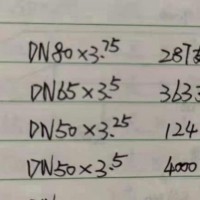 DN80×3.75 287支
DN65×3.5 3633
DN50×3.25 124
DN50×3.5 4000